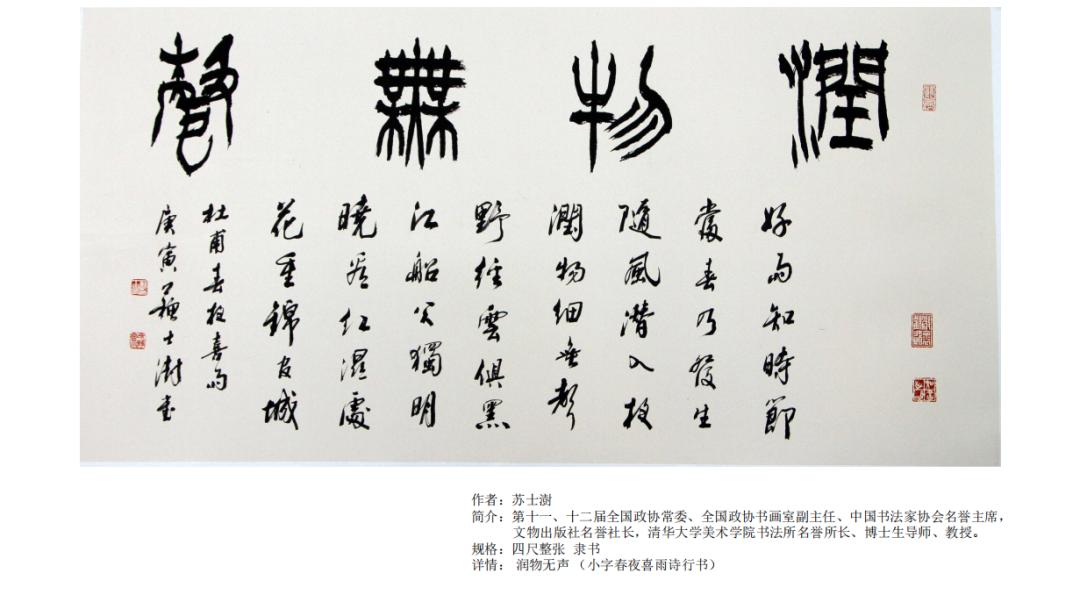 潤物無聲
好雨知時節
當春乃發生
隨風潛入夜
潤物細無聲
野徑雲俱黑
江船火獨明
曉看紅濕處
花重錦官城
杜甫春夜喜雨
庚寅蘇士澍書
作者：苏士澍
简介：第十一、十二届全国政协常委、全国政协书画室副主任、中国书法家协会名誉主席，
文物出版社名誉社长，清华大学美术学院书法所名誉所长、博士生导师、教授。
规格：四尺整张 隶书
详情： 润物无声 （小字春夜喜雨诗行书）